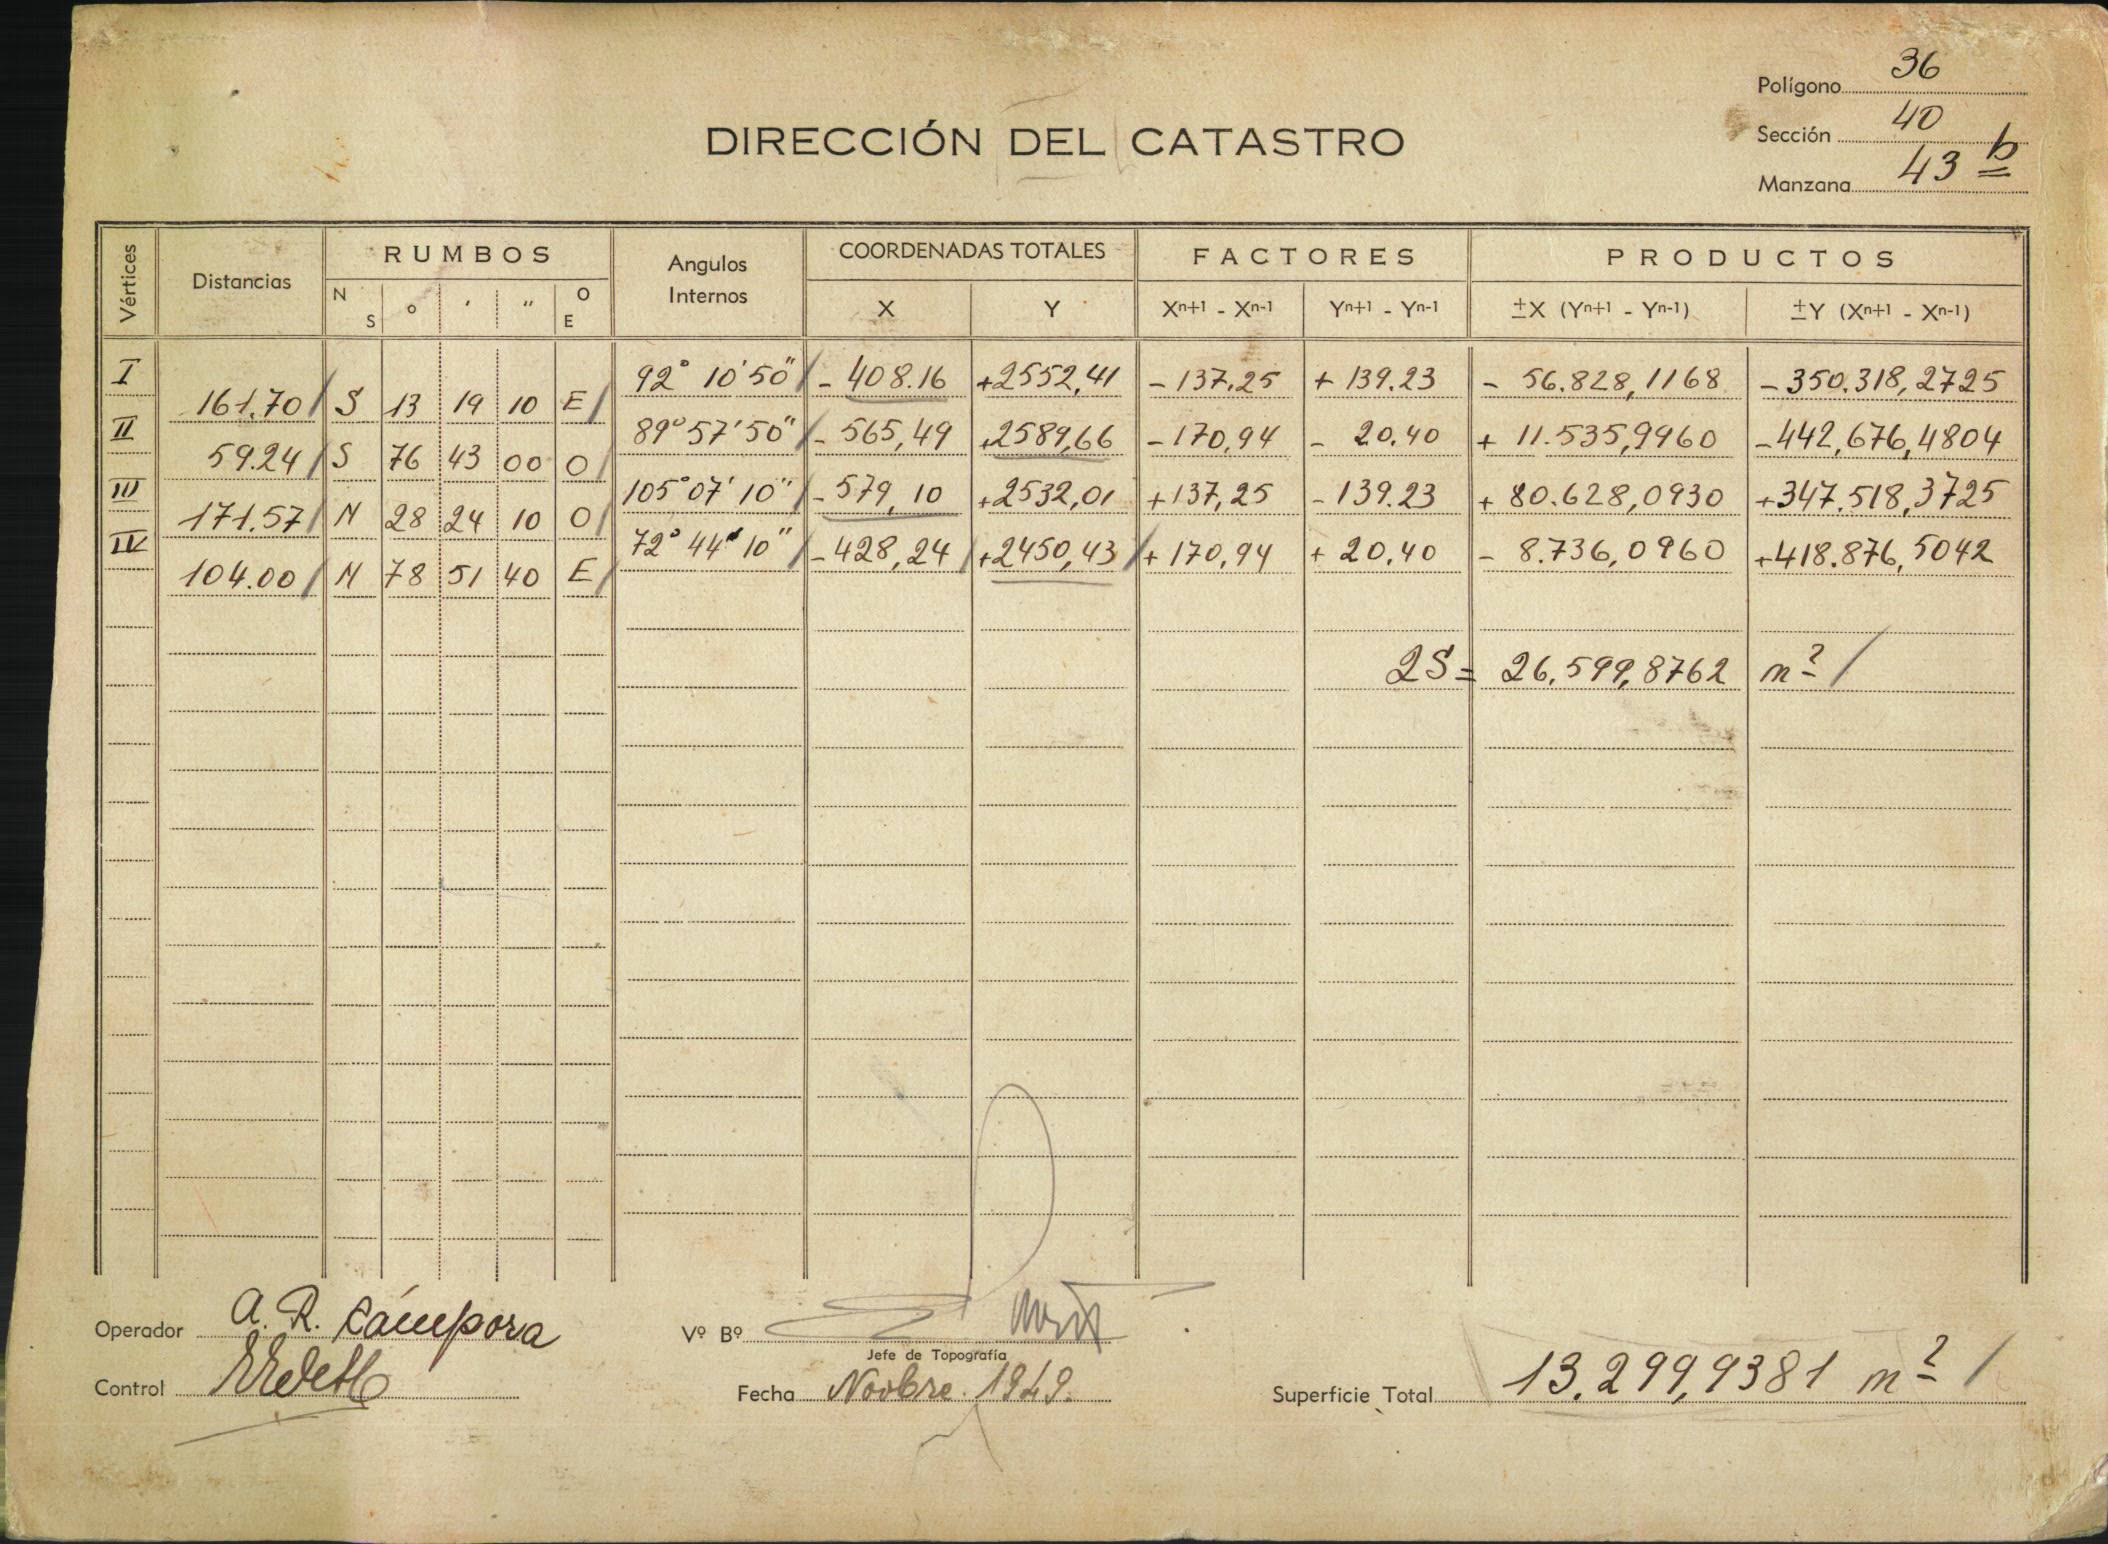 Polígono 36
DIRECCIÓN DEL CATASTRO
Sección 40
Manzana 43 b
Vértices Distancias RUMBOS Angulos Internos COORDENADAS TOTALES FACTORES PRODUCTOS
N S ° ' " O E X Y Xn+1 - Xn-1 Yn+1 - Yn-1 ±X (Yn+1 - Yn-1) ±Y (Xn+1 - Xn-1)
I 92° 10' 50" - 408.16 +2552,41 - 137.25 + 139.23 - 56.828,1168 - 350.318,2725
161.70 S 13 19 10 E
II 89° 57' 50" - 565,49 +2589,66 - 170,94 - 20.40 + 11.535,9960 - 442,676,4804
59.24 S 76 43 00 O
III 105° 07' 10" - 579,10 +2532,01 + 137,25 - 139.23 + 80.628,0930 + 347.518,3725
171.57 N 28 24 10 O
IV 72° 44' 10" - 428,24 +2450,43 + 170,94 + 20.40 - 8.736,0960 + 418.876,5042
104.00 N 78 51 40 E
2S = 26.599,8762 m²
Operador A. R. Cámpora
Vº Bº
Jefe de Topografía
Control
Fecha Novbre. 1949.
Superficie Total 13.299,9381 m²